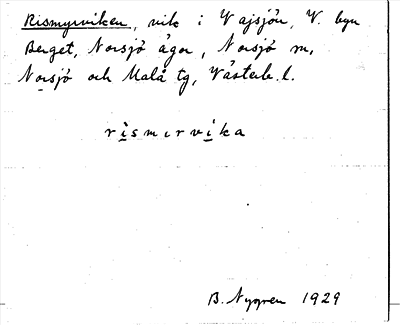 Rismyrviken, vik i Vajsjön, V. byn
Berget, Norsjö ägor, Norsjö sn,
Norsjö och Malå tg, Västerb. l.
rismɩrvika
B. Nygren 1929